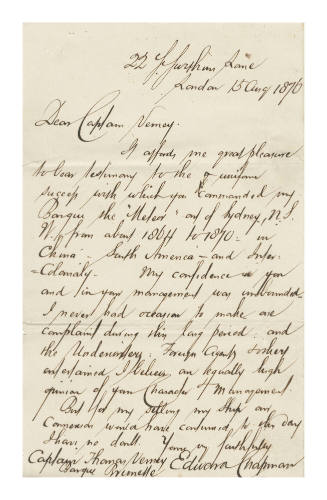 London 15 Aug 1876
Dear Captain Verney.
It affords me great pleasure
to bear testimony to the uniform
success with which you commanded my
Barque the "Meteor" out of Sydney, N.S.
W. from about 1864 to 1870 - in
China - South America - and Inter-
-Colonialy - My confidence in you
and in your management was unbounded -
I never had occasion to make one
complaint during this long period - and
the Underwriters, Foreign Agents & others
entertained I believe an equally high
opinion of your Character & Management.
But for my selling my Ship our
Connexion would have continued to this day
I have no doubt. Yours very faithfully
Captain Thomas Verney Edward Chapman
Barque Brunette